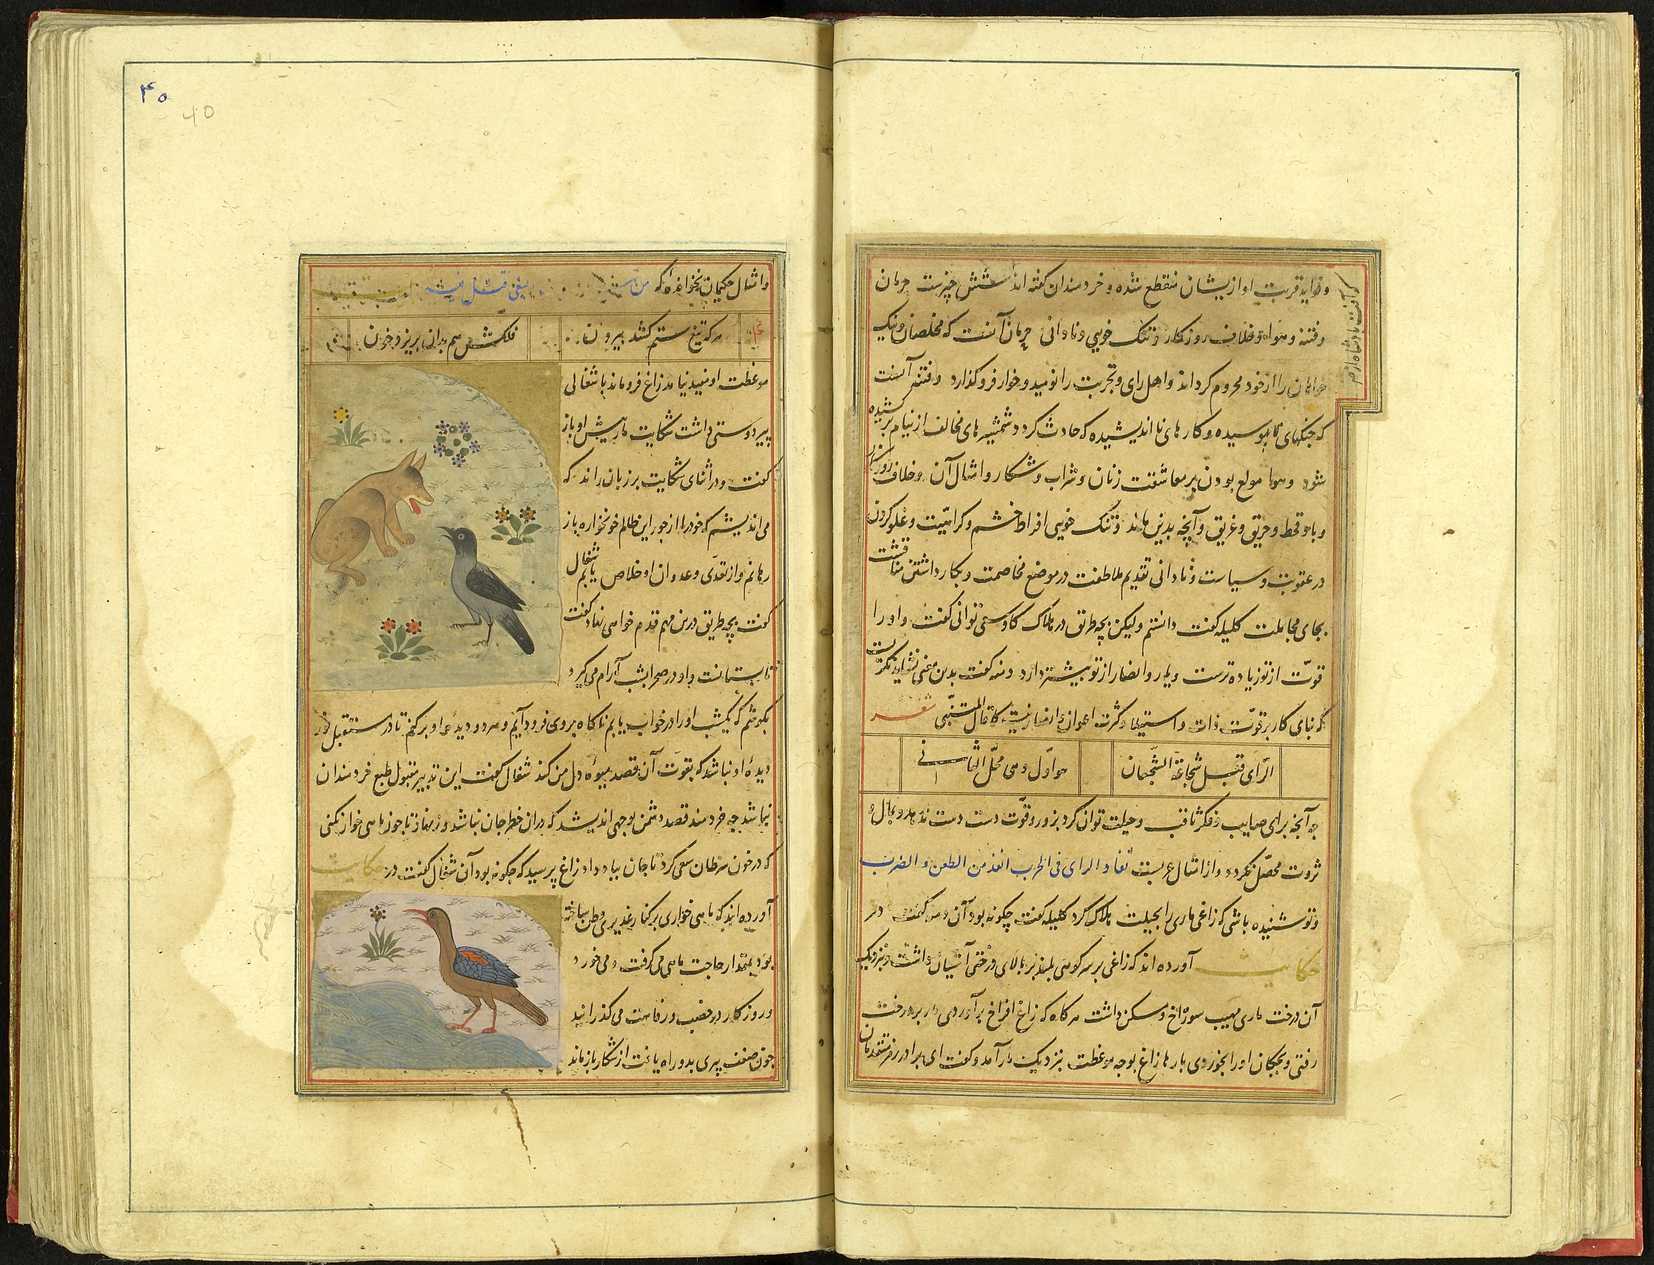 و فواید قربت او از ایشان منقطع شده و خردمندان گفته اند شش چیزست حرمان
که آفت پادشاه از هر
و فتنه و هوا و خلاف روزگار و تنگ خویی و نادانی حرمان آنست که مخلصان و نیک
خواهان را از خود محروم گرداند و اهل رای و تجربت را نومید و خوار فروگذارد و فتنه آنست
که جنگهای ناپیوسیده و کارهای نااندیشیده که حادث گردد و شمشیرهای مخالف از نیام برکشیده
شود و هوا مولع بودن بر معاشقت زنان و شراب و شکار و امثال آن و خلاف روزگار
وبا و قحط و حریق و غریق و آنچه بدین ماند و تنگ خویی افراط خشم و کراهیت و غلو کردن
در عقوبت و سیاست و نادانی تقدیم ملاطفت در موضع مخاصمت و بکار داشتن مناقشت
بجای مجاملت کلیله گفت دانستم ولیکن بچه طریق در هلاک گاو سعی توانی کرد و او را
قوت از تو زیاده ترست و یار و انصار از تو بیشتر دارد دمنه گفت بدین معنی نشاید نگریست
که بنای کار بر قوت ذات و استیلا و کثرت اعوان و انصار نیست کما قال المتنبی شعر
الرای قبل شجاعة الشجعان
هو اول و هی محل الثانی
چه آنچه برای صایب و فکر ثاقب و حیلت توان کرد بزور و قوت دست دست ندهد و بمال و
ثروت محصل نگردد و از امثال عربست نفاد الرای فی الحرب انفذ من الطعن و الضرب
و تو نشنیده باشی که زاغی ماری را بحیلت هلاک کرد کلیله گفت چگونه بود آن دمنه گفت در
حکایت آورده اند که زاغی بر سر کوهی بلند بر بالای درختی آشیان داشت و بنزدیک
آن درخت ماری مهیب سوراخ و مسکن داشت هرگاه که زاغ افراخ برآوردی مار بر درخت
رفتی و بچگان او را بخوردی بارها زاغ بوجه موعظت بنزدیک مار آمد و گفت ای برادر زمر متقدمان
۴۰
40
و امثال حکیمان نخوانده که من سل سیف البغی قتل به
هر که تیغ ستم کشد بیرون
فلکش هم بدان بریزد خون
موعظت او مفید نیامد زاغ فروماند با شغالی
پیر دوستی داشت شکایت مار پیش او باز
گفت و در اثنای شکایت بر زبان راند که
می اندیشم که خود را از جور این ظالم خونخواره باز
رهانم و از تعدی و عدوان او خلاص یابم شغال
گفت بچه طریق درین مهم قدم خواهی نهاد گفت
تابستانست و او در صحرا بشب آرام می گیرد
بکوشم که یکشب او را در خواب یابم ناگاه بروی فرود آیم و هر دو دیده او برکنم تا در مستقبل نور
دیده او نباشد که بقوت آن قصد میوه دل من کند شغال گفت این تدبیر مقبول طبع خردمندان
نباشد چه خردمند قصد دشمن بوجهی اندیشد که دران خطر جان نباشد و زینهار تا چون ماهی خوار نکنی
که در خون سرطان سعی کرد تا جان بباد داد زاغ پرسید که چگونه بود آن شغال گفت در حکایت
آورده اند که ماهی خواری بر کنار غدیری وطن ساخته
بود بمقدار حاجت ماهی می گرفت و می خورد
و روزگار در خصب و رفاهت می گذرانید
چون ضعف پیری بدو راه یافت از شکار بازماند